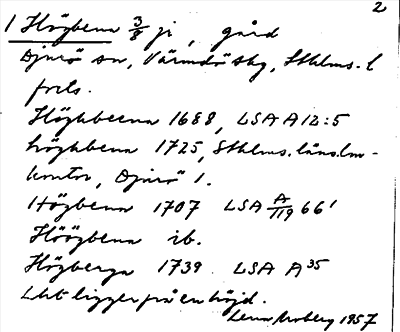 2
1 Högbena 3/8 fr, gård
Djurö sn, Värmdö skg, Sthlms. l
frels.
Höghbeena 1688, LSA A12:5
höghbena 1725, Sthlms. läns. lm-
kontor, Djurö 1.
Högbena 1707 LSA A/119 66'
Höögbena ib.
Högberga 1739 LSA A35
Lht ligger på en höjd.
Lena Moberg 1957